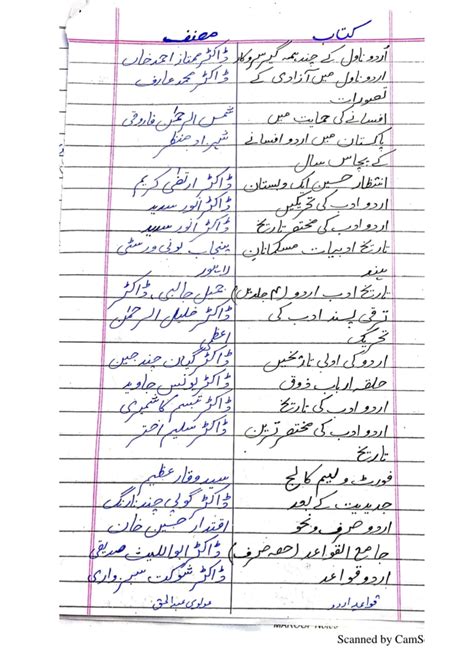 کتاب مصنف
اردو ناول کے چند ہمہ گیر سروکار ڈاکٹر ممتاز احمد خاں
اردو ناول میں آزادی کے ڈاکٹر محمد عارف
تصورات
افسانے کی حمایت میں شمس الرحمٰن فاروقی
پاکستان میں اردو افسانے شہزاد منظر
کے پچاس سال
انتظار حسین ایک دبستان ڈاکٹر ارتضیٰ کریم
اردو ادب کی تحریکیں ڈاکٹر انور سدید
اردو ادب کی مختصر تاریخ ڈاکٹر انور سدید
تاریخ ادبیات مسلمانان پنجاب یونی ورسٹی
ہند لاہور
تاریخ ادب اردو (۴ جلدیں) جمیل جالبی، ڈاکٹر
ترقی پسند ادب کی ڈاکٹر خلیل الرحمٰن
تحریک اعظمی
اردو کی ادبی تاریخیں ڈاکٹر گیان چند جین
حلقہ ارباب ذوق ڈاکٹر یونس جاوید
اردو ادب کی تاریخ ڈاکٹر تبسم کاشمیری
اردو ادب کی مختصر ترین ڈاکٹر سلیم اختر
تاریخ
فورٹ ولیم کالج سید وقار عظیم
جدیدیت کے بعد ڈاکٹر گوپی چند نارنگ
اردو صرف و نحو اقتدار حسین خان
جامع القواعد (حصہ صرف) ڈاکٹر ابواللیث صدیقی
اردو قواعد ڈاکٹر شوکت سبزواری
قواعد اردو مولوی عبدالحق
Scanned by CamS